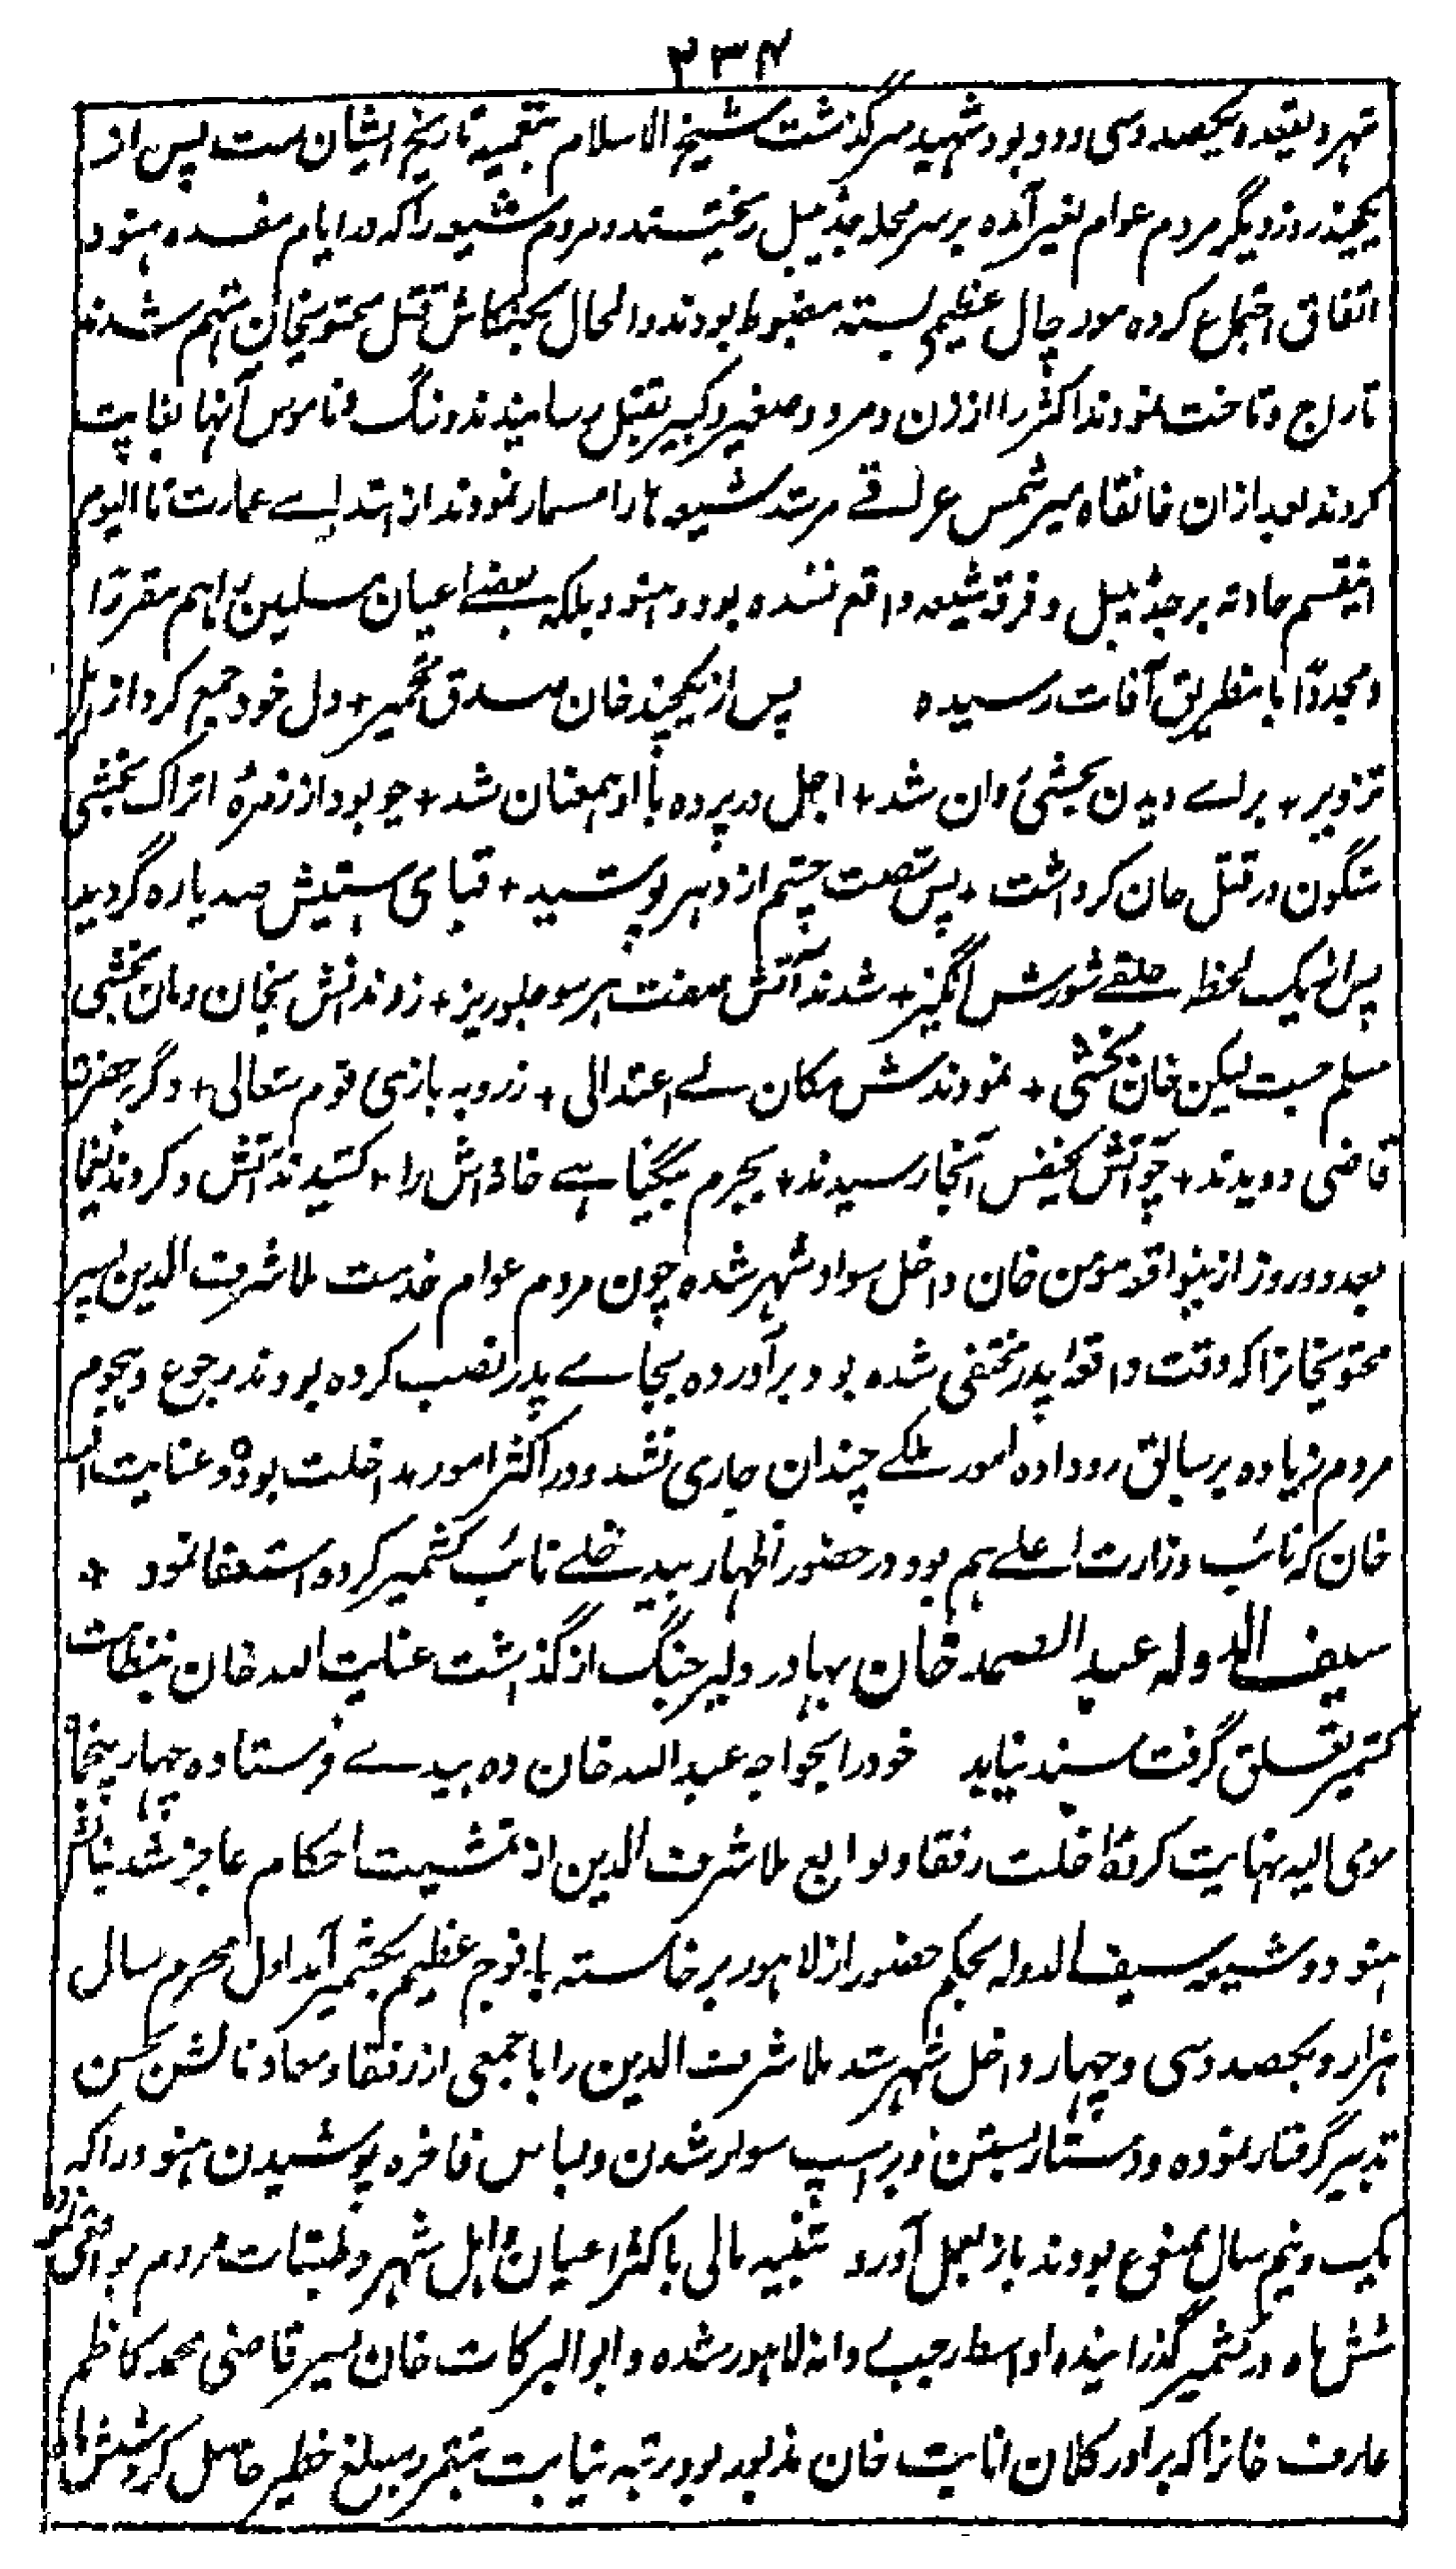 ۲۳۴
شهر ذیقعده یکصد و سی و دو بود شهید سرگذشت شیخ الاسلام بتعمیه تاریخ ایشان ست پس از
یکچند روز دیگر مردم عوام بغیر آمده بر سر محله جڈیبل ریختند و مردم شیعه را که در ایام مفسده هنود
اتفاق اجتماع کرده مورچال عظیمی بسته مضبوط بودند و الحال بکنکاش قتل محتویخان متهم شدند
تاراج و تاخت نمودند اکثر را از زن و مرد و صغیر و کبیر بقتل رسانیدند و ننگ و ناموس آنها بغایت
کردند بعد ازان خانقاه میر شمس عراقے مرشد شیعه ها را مسمار نمودند از ابتداے عمارت تا الیوم
اینقسم حادثه بر جڈیبل و فرقه شیعه واقع نشده بود و هنود بلکه بعضے اعیان مسلمین را هم مقررًا
و مجددًا باینطریق آفات رسیده پس از یکچند خان صدق تخمیر + دل خود جمع کرد از اهل
تزویر + براے دیدن بخشی روان شد + اجل در پرده با او همعنان شد + چو بود از زمرهٔ اتراک بخشی
شگون در قتل خان کرد اشت + پس چشم از دهر پوشید + قبای هستیش صد پاره گردید
پس از یک لحظه خلقے شورش انگیز + شدند آتش صفت هر سو جلوریز + زدند آتش بخان و مان بخشی
مسلم جست لیکن خان بخشی + نمودندش مکان بے اعتدالی + ز روبه بازی قوم شغالی + دگر بر حضرت
قاضی دویدند + چو آتش یکنفس آنجا رسیدند + بجرم بیگناهے خانه اش را + کشیدند آتش و کردند یغما
بعد دو روز ازینواقعه مؤمن خان داخل سواد شهر شده چون مردم عوام خدمت ملا شرف الدین پسر
محتویخانرا که وقت واقعهٔ پدر مختفی شده بود برآورده بجاے پدر نصب کرده بودند رجوع و هجوم
مردم زیاده بر سابق رو داده امور ملکے چندان جاری نشد و در اکثر امور مداخلت بود و عنایت الله
خان که نائب وزارت اعلے هم بود در حضور اظهار بیدخلے نائب کشمیر کرده استعفا نمود +
سیف الدوله عبد الصمد خان بهادر دلیر جنگ از گذاشت عنایت الله خان بنظامت
کشمیر تعلق گرفت سند نیابد خود را بخواجه عبد الله خان ده بیدے فرستاده چهار پنجماه
مومی الیه نهایت کرد مداخلت رفقا و توابع ملا شرف الدین از تمشیت احکام عاجز شد بنالش
هنود و شیعه سیف الدوله بحکم حضور از لاهور برخاسته با فوج عظیم بکشمیر آمد اول محرم سال
هزار و یکصد و سی و چهار داخل شهر شد ملا شرف الدین را با جمعی از رفقا و معاونانش بحسن
تدبیر گرفتار نموده و دستار بستن و بر اسپ سوار شدن و لباس فاخره پوشیدن هنود را که
یک و نیم سال ممنوع بودند باز بعمل آورد تنبیه مالی باکثر اعیان اهل شهر و طبقات مردم بواقعی نموده
شش ماه در کشمیر گذرانیده اواسط رجب روانه لاهور شده و ابو البرکات خان پسر قاضی محمد کاظم
عارف خانرا که برادر کلان انابت خان مذبور بود برتبه نیابت بتقرر مبلغ خطیر حاصل کرد شش ماه